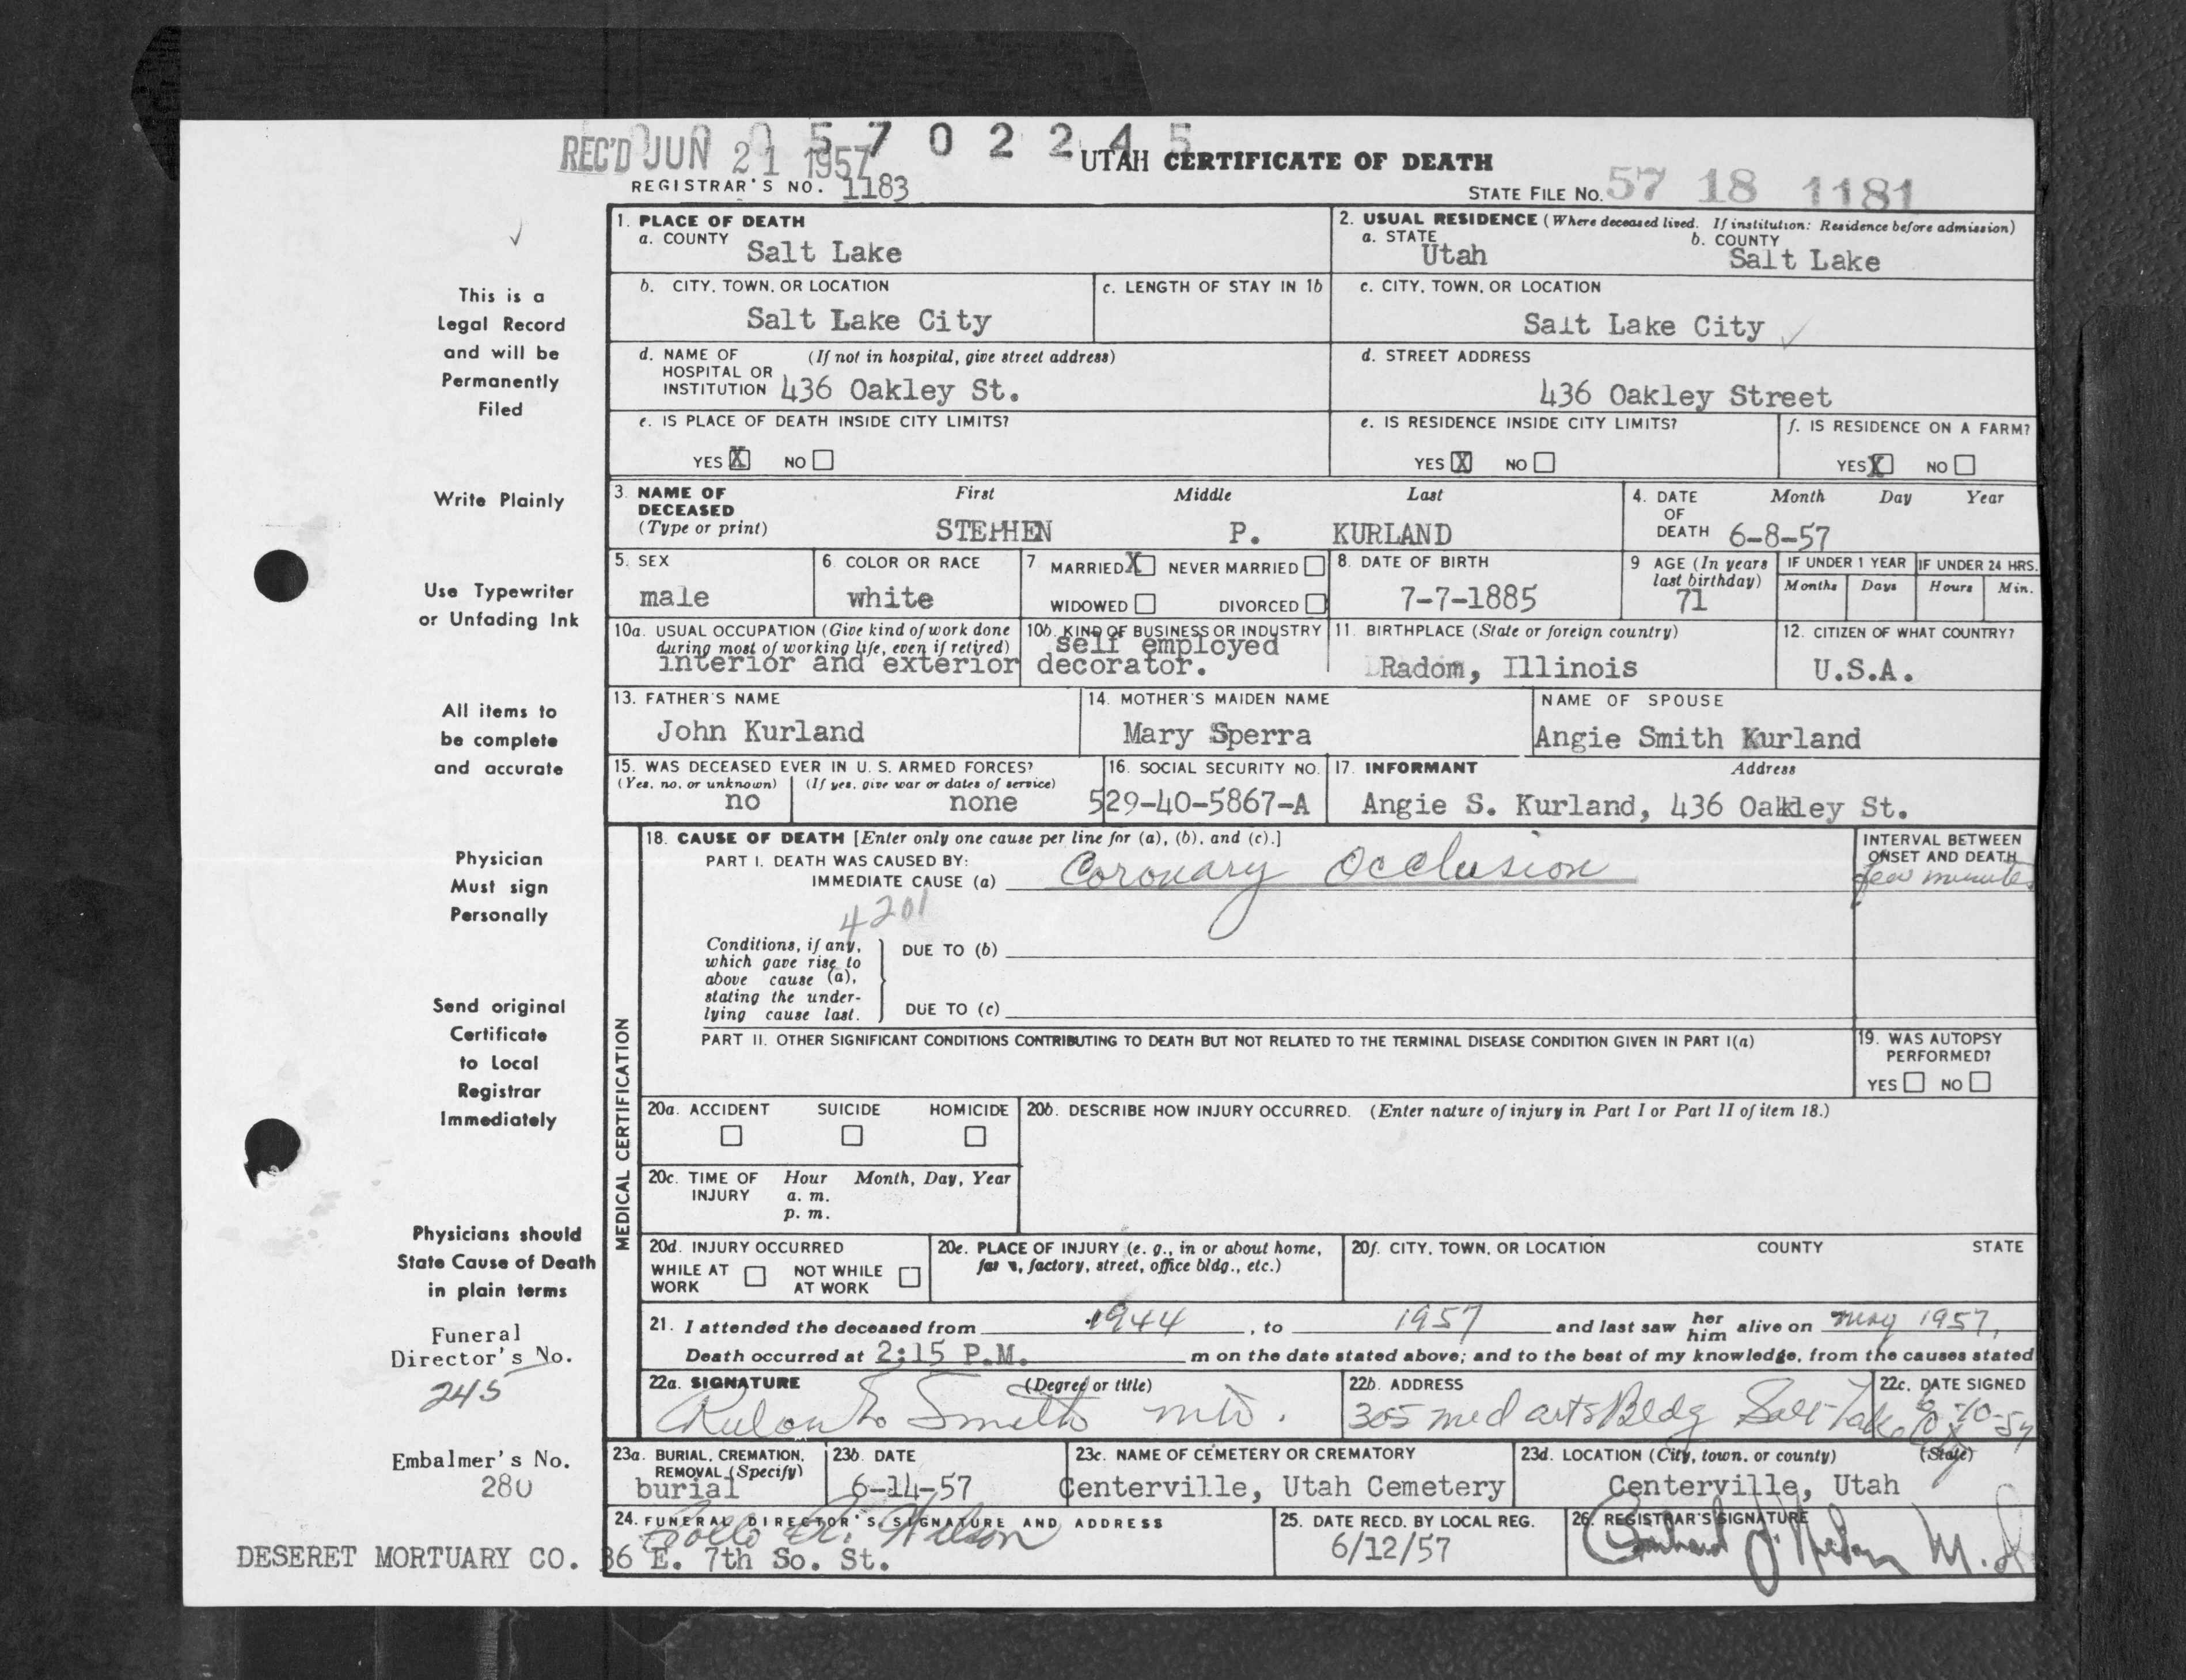 0 0 0 5 7 0 2 2 4 5
REC'D JUN 21 1957
UTAH CERTIFICATE OF DEATH
REGISTRAR'S NO. 1183
STATE FILE NO. 57 18 1181
This is a
Legal Record
and will be
Permanently
Filed
Write Plainly
Use Typewriter
or Unfading Ink
All items to
be complete
and accurate
Physician
Must sign
Personally
Send original
Certificate
to Local
Registrar
Immediately
Physicians should
State Cause of Death
in plain terms
Funeral
Director's No.
245
Embalmer's No.
280
1. PLACE OF DEATH
a. COUNTY Salt Lake
2. USUAL RESIDENCE (Where deceased lived. If institution: Residence before admission)
a. STATE Utah b. COUNTY Salt Lake
b. CITY, TOWN, OR LOCATION
Salt Lake City
c. LENGTH OF STAY IN 1b
c. CITY, TOWN, OR LOCATION
Salt Lake City
d. NAME OF (If not in hospital, give street address)
HOSPITAL OR
INSTITUTION 436 Oakley St.
d. STREET ADDRESS
436 Oakley Street
e. IS PLACE OF DEATH INSIDE CITY LIMITS?
YES X NO
e. IS RESIDENCE INSIDE CITY LIMITS?
YES X NO
f. IS RESIDENCE ON A FARM?
YES X NO
3. NAME OF DECEASED (Type or print)
First Middle Last
STEPHEN P. KURLAND
4. DATE OF DEATH Month Day Year
6-8-57
5. SEX
male
6. COLOR OR RACE
white
7 MARRIED X NEVER MARRIED
WIDOWED DIVORCED
8. DATE OF BIRTH
7-7-1885
9 AGE (In years last birthday)
71
IF UNDER 1 YEAR
Months Days
IF UNDER 24 HRS.
Hours Min.
10a. USUAL OCCUPATION (Give kind of work done
during most of working life, even if retired)
interior and exterior
10b. KIND OF BUSINESS OR INDUSTRY
self employed
decorator.
11. BIRTHPLACE (State or foreign country)
Radom, Illinois
12. CITIZEN OF WHAT COUNTRY?
U.S.A.
13. FATHER'S NAME
John Kurland
14. MOTHER'S MAIDEN NAME
Mary Sperra
NAME OF SPOUSE
Angie Smith Kurland
15. WAS DECEASED EVER IN U. S. ARMED FORCES?
(Yes, no, or unknown) (If yes, give war or dates of service)
no none
16. SOCIAL SECURITY NO.
529-40-5867-A
17. INFORMANT Address
Angie S. Kurland, 436 Oakley St.
MEDICAL CERTIFICATION
18. CAUSE OF DEATH [Enter only one cause per line for (a), (b), and (c).]
PART I. DEATH WAS CAUSED BY:
IMMEDIATE CAUSE (a) Coronary Occlusion
INTERVAL BETWEEN
ONSET AND DEATH
few minutes
4201
Conditions, if any,
which gave rise to
above cause (a),
stating the under-
lying cause last.
DUE TO (b)
DUE TO (c)
PART II. OTHER SIGNIFICANT CONDITIONS CONTRIBUTING TO DEATH BUT NOT RELATED TO THE TERMINAL DISEASE CONDITION GIVEN IN PART I(a)
19. WAS AUTOPSY
PERFORMED?
YES NO
20a. ACCIDENT SUICIDE HOMICIDE
20b. DESCRIBE HOW INJURY OCCURRED. (Enter nature of injury in Part I or Part II of item 18.)
20c. TIME OF INJURY Hour Month, Day, Year
a. m.
p. m.
20d. INJURY OCCURRED
WHILE AT WORK NOT WHILE AT WORK
20e. PLACE OF INJURY (e. g., in or about home,
farm, factory, street, office bldg., etc.)
20f. CITY, TOWN, OR LOCATION COUNTY STATE
21. I attended the deceased from 1944, to 1957 and last saw her him alive on May 1957,
Death occurred at 2:15 P.M. m on the date stated above; and to the best of my knowledge, from the causes stated
22a. SIGNATURE (Degree or title)
Smith MD.
22b. ADDRESS
305 Med arts Bldg Salt Lake City
22c. DATE SIGNED
6-10-57
23a. BURIAL, CREMATION,
REMOVAL (Specify)
burial
23b. DATE
6-14-57
23c. NAME OF CEMETERY OR CREMATORY
Centerville, Utah Cemetery
23d. LOCATION (City, town, or county) (State)
Centerville, Utah
24. FUNERAL DIRECTOR'S SIGNATURE AND ADDRESS
DESERET MORTUARY CO. 36 E. 7th So. St.
25. DATE RECD. BY LOCAL REG.
6/12/57
26. REGISTRAR'S SIGNATURE
M.D.